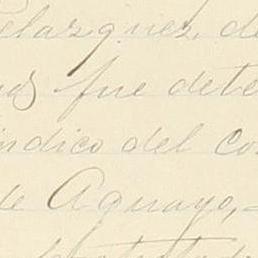 Velazquez, de
fue dete
indico del co
de Aguayo,